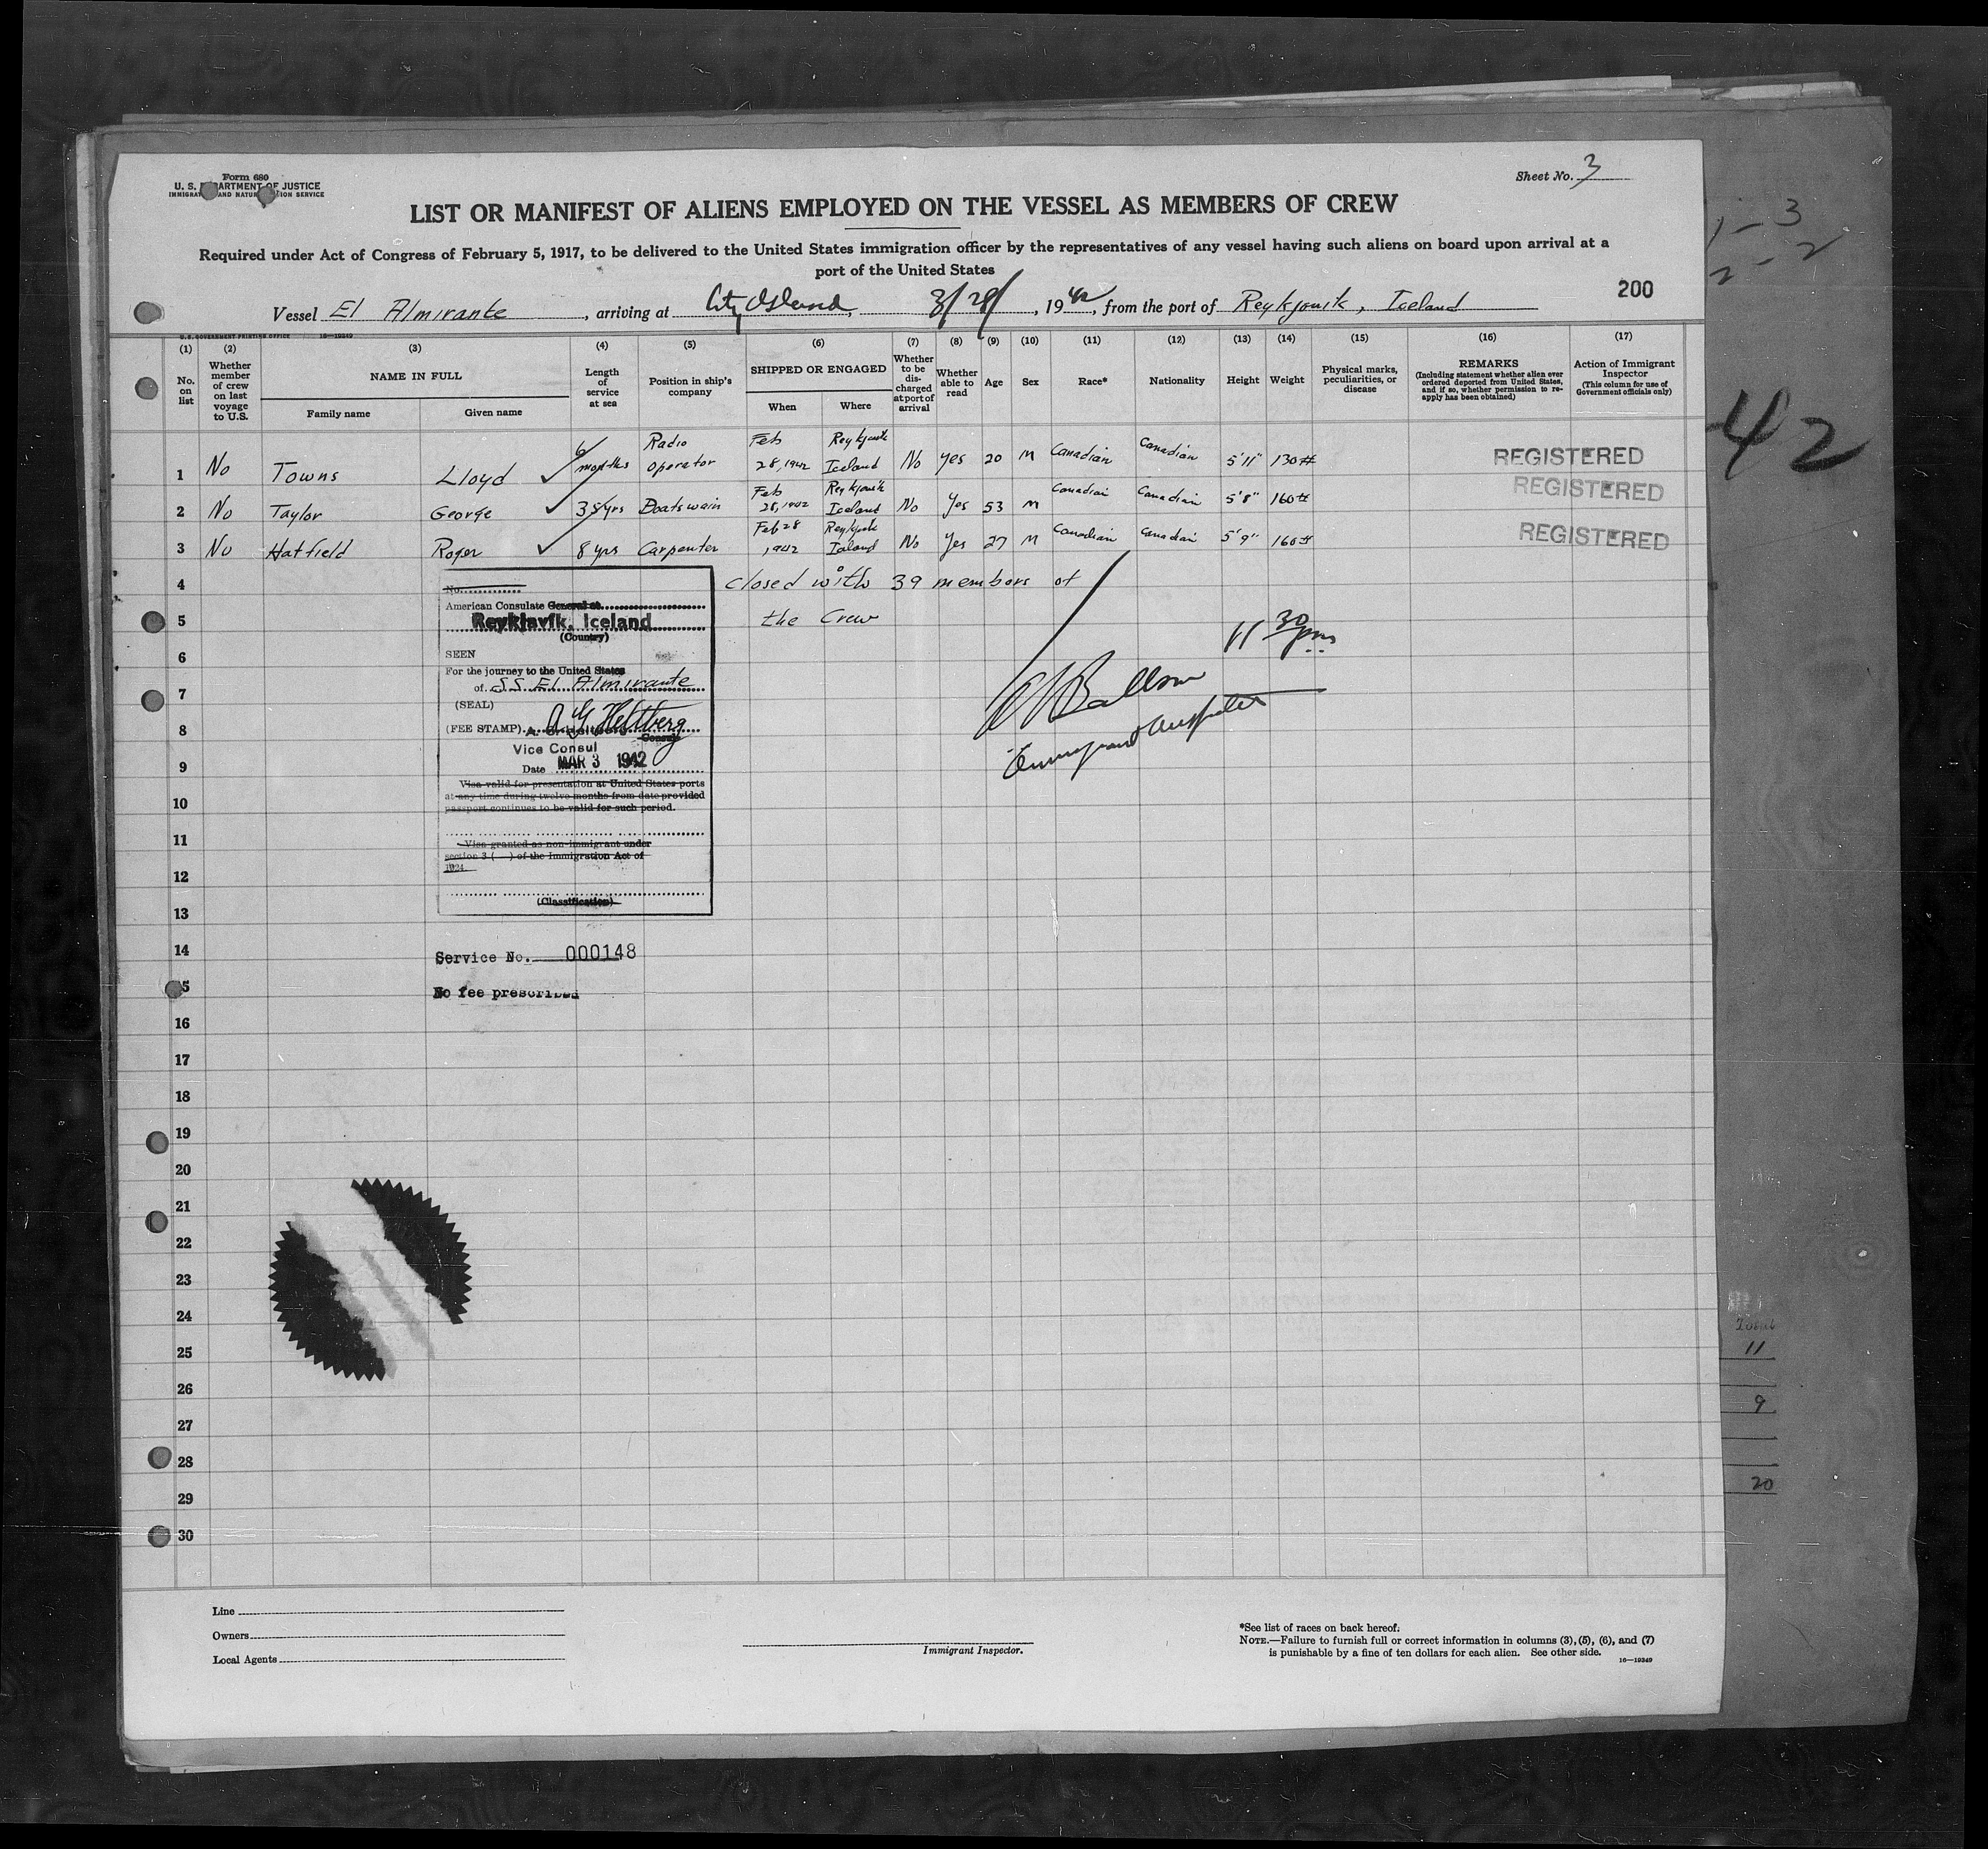 Form 680
U. S. DEPARTMENT OF JUSTICE
IMMIGRATION AND NATURALIZATION SERVICE
Sheet No. 3
LIST OR MANIFEST OF ALIENS EMPLOYED ON THE VESSEL AS MEMBERS OF CREW
Required under Act of Congress of February 5, 1917, to be delivered to the United States immigration officer by the representatives of any vessel having such aliens on board upon arrival at a
port of the United States
200
Vessel El Almirante, arriving at City Island, 3/28/, 1942, from the port of Reykjavik, Iceland
U. S. GOVERNMENT PRINTING OFFICE 16—19349
(1) No. on list
(2) Whether member of crew on last voyage to U.S.
(3) NAME IN FULL Family name Given name
(4) Length of service at sea
(5) Position in ship's company
(6) SHIPPED OR ENGAGED When Where
(7) Whether to be discharged at port of arrival
(8) Whether able to read
(9) Age
(10) Sex
(11) Race*
(12) Nationality
(13) Height
(14) Weight
(15) Physical marks, peculiarities, or disease
(16) REMARKS (Including statement whether alien ever ordered deported from United States, and if so, whether permission to reapply has been obtained)
(17) Action of Immigrant Inspector (This column for use of Government officials only)
1 No Towns Lloyd 6 months Radio operator Feb 28, 1942 Reykjavik Iceland No yes 20 M Canadian Canadian 5'11" 130# REGISTERED
REGISTERED
2 No Taylor George 35 yrs Boatswain Feb 28, 1942 Reykjavik Iceland No Yes 53 M Canadian Canadian 5'8" 160#
3 No Hatfield Roger 8 yrs Carpenter Feb 28 1942 Reykjavik Iceland No Yes 27 M Canadian Canadian 5'9" 160# REGISTERED
4 closed with 39 members of
5 the Crew
11 30 pm
Immigrant Inspector
No.
American Consulate General at
Reykjavik, Iceland
(Country)
SEEN
For the journey to the United States
of SS El Almirante
(SEAL)
(FEE STAMP)
Consul
Vice Consul
Date MAR 3 1942
Visa valid for presentation at United States ports
at any time during twelve months from date provided
passport continues to be valid for such period.
Visa granted as non-immigrant under
section 3 ( ) of the Immigration Act of
1924.
(Classification)
Service No. 000148
No fee prescribed
6
7
8
9
10
11
12
13
14
15
16
17
18
19
20
21
22
23
24
25
26
27
28
29
30
Line
Owners
Local Agents
Immigrant Inspector.
*See list of races on back hereof.
NOTE.—Failure to furnish full or correct information in columns (3), (5), (6), and (7)
is punishable by a fine of ten dollars for each alien. See other side.
16—19349
1 - 3
2 - 2
42
Total
11
9
20